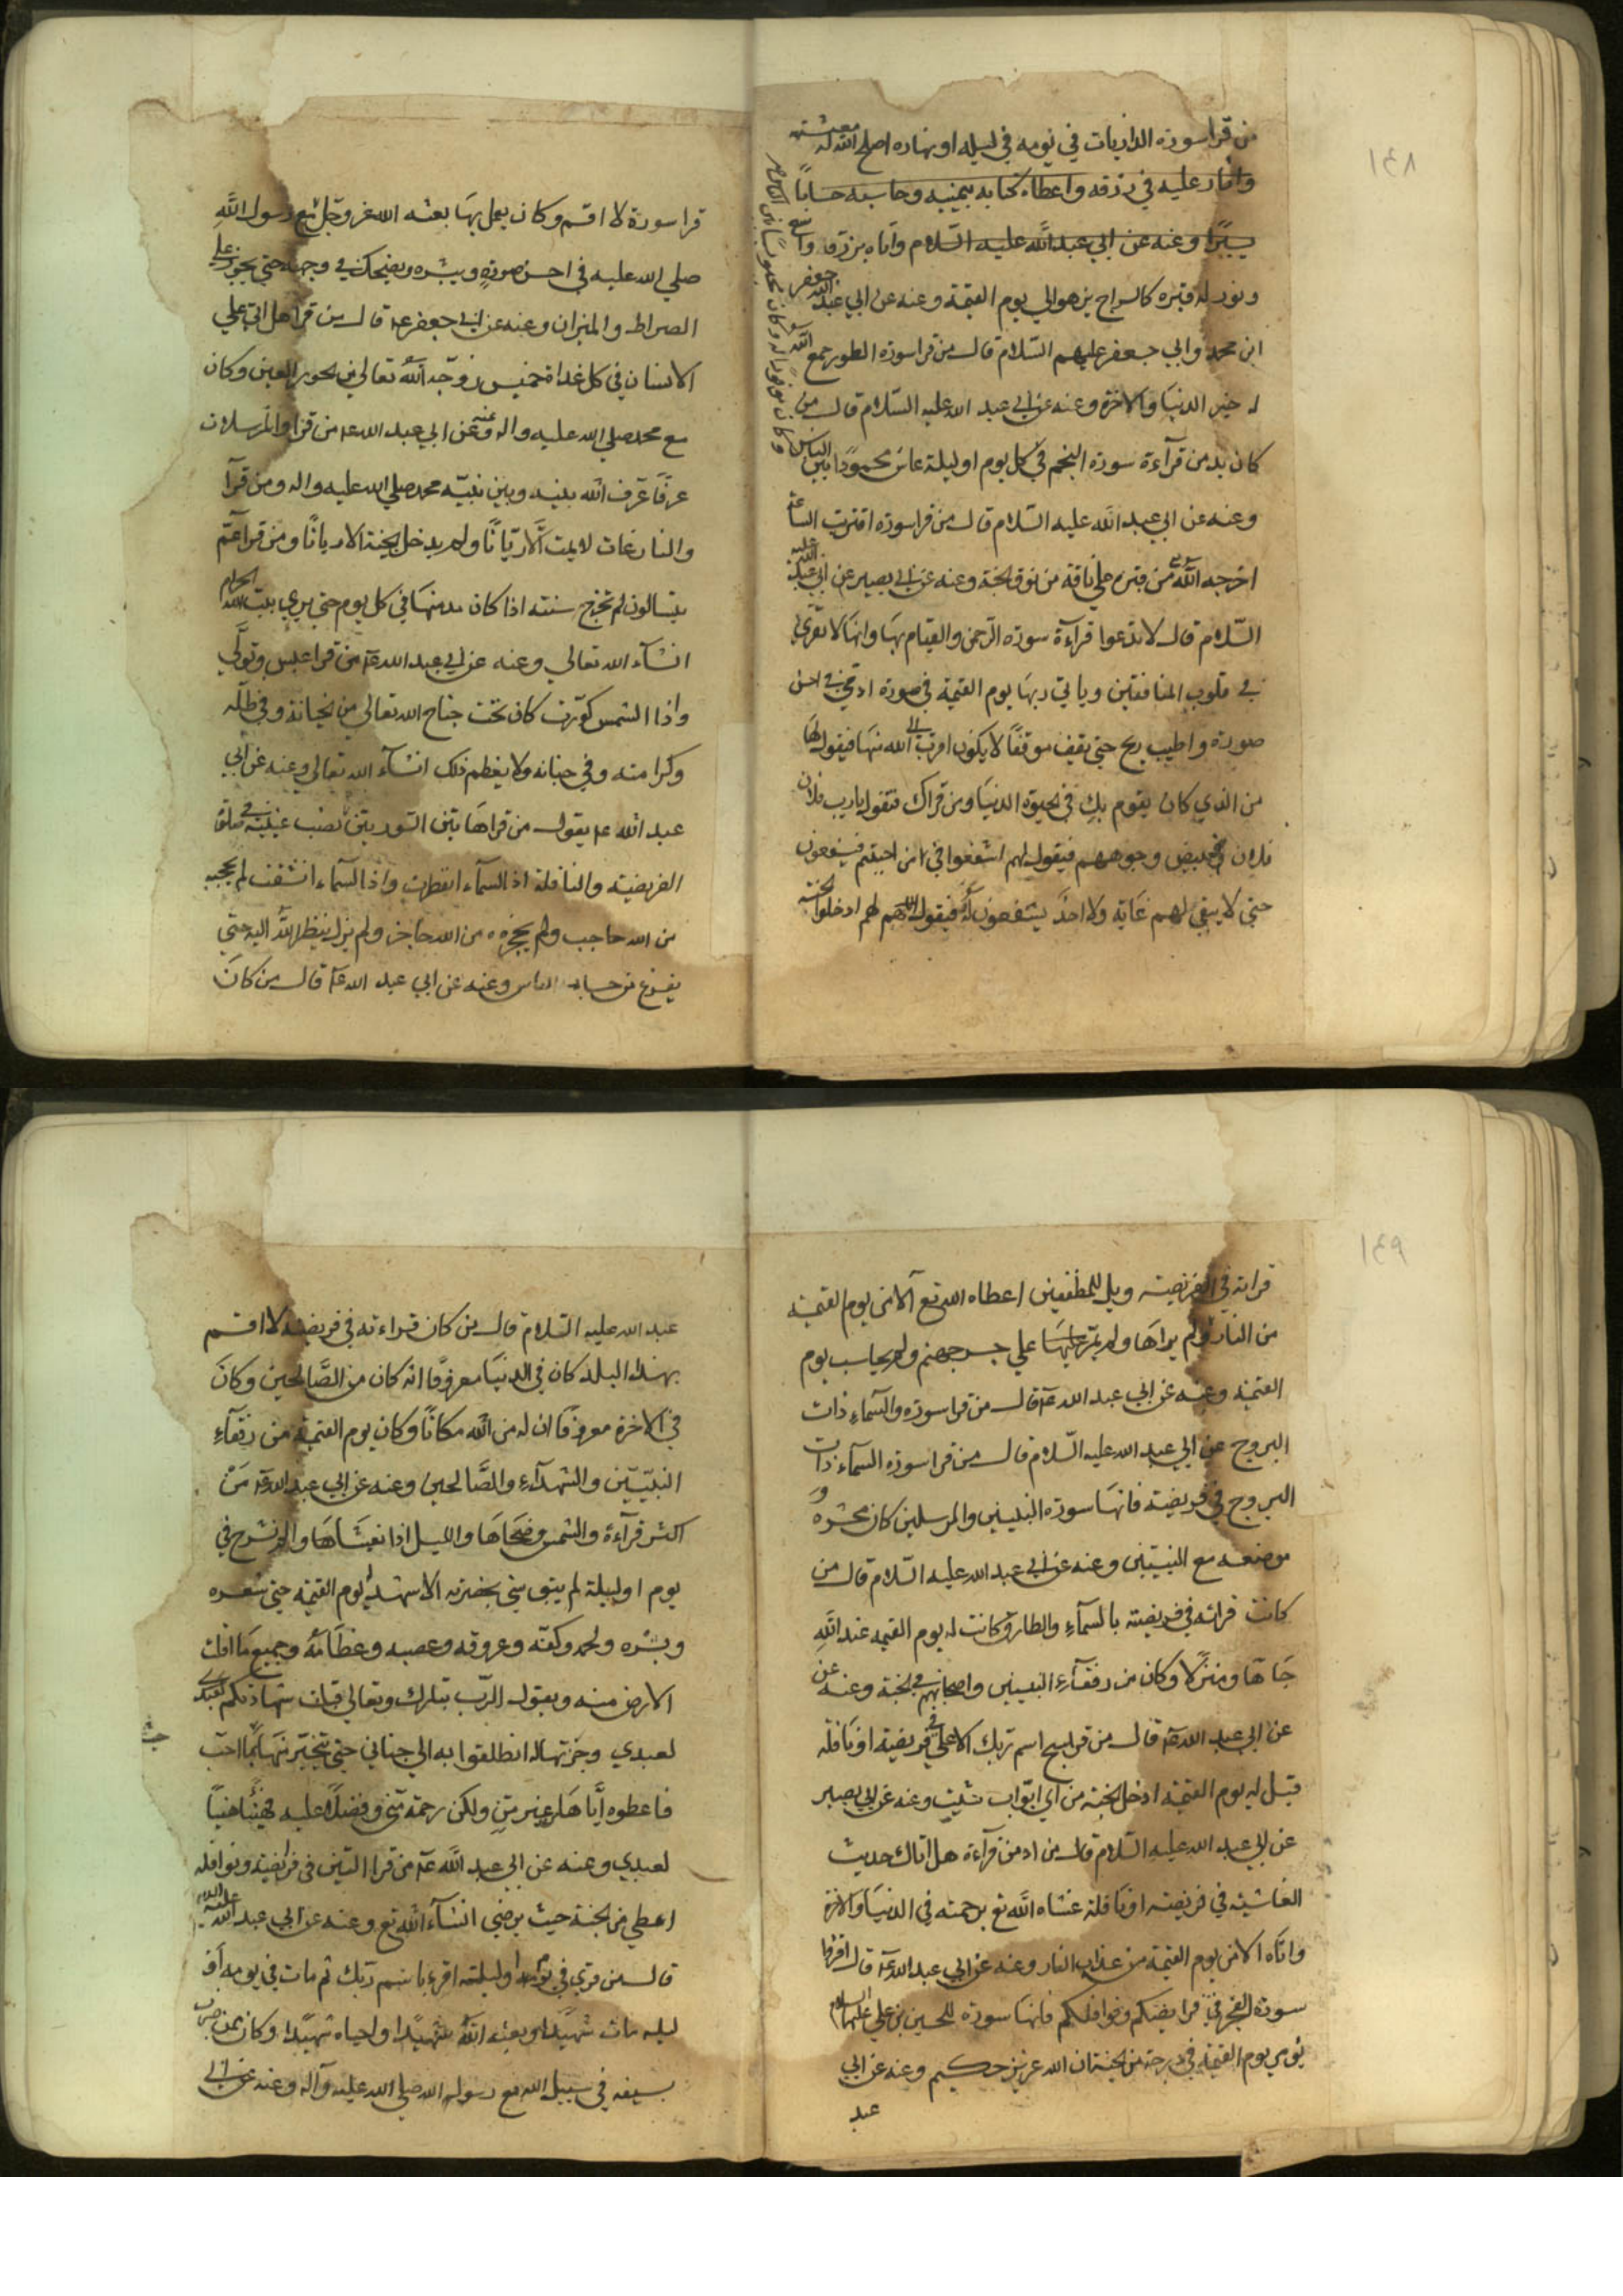 ١٤٨
من قرا سورة الذاريات في يومه في ليله او نهاره اصلح الله له معيشته
وانار عليه في رزقه واعطاه كتابه بيمينه وحاسبه حساباً
يسيرًا وعنه عن ابي عبد الله عليه السلام واتاه برزق واسع
ونور له قبره كالسراج يزهو الي يوم القيمة وعنه عن ابي عبد الله جعفر
ابن محمد وابي جعفر عليهم السلام قال من قرا سورة الطور جمع الله
له خير الدنيا والاخرة وعنه عن ابي عبد الله عليه السلام قال من
كان يدمن قرآءة سورة النجم في كل يوم او ليلة عاش محمودًا بين الناس
وكان مغفورًا له وكان محبوبًا بين الناس
وعنه عن ابي عبد الله عليه السلام قال من قرا سورة اقتربت الساعة
اخرجه الله من قبره علي ناقة من نوق الجنة وعنه عن ابي بصير عن ابي عبد الله عليه
السلام قال لا تدعوا قرآءة سورة الرحمن والقيام بها وانها لا تقري
في قلوب المنافقين وياتي ربها يوم القيمة في صورة ادمي في احسن
صورة واطيب ريح حتي يقف موقفًا لا يكون اقرب الي الله منها فيقول لها
من الذي كان يقوم بك في الحيوة الدنيا ومن قراك فتقول يا رب فلان
فلان فتبيض وجوههم فيقول لهم اشفعوا في من احببتم فيشفعون
حتي لا يبقي لهم غاية ولا احدً يشفعون له فيقول الله لهم ادخلوا الجنة
قرا سورة لا اقسم وكان يعمل بها بعثه الله عز وجل مع رسول الله
صلي الله عليه في احسن صورةٍ ويبشره ويضحك في وجهه حتي يجوز علي
الصراط والميزان وعنه عن ابي جعفر عه قال من قرا هل اتي علي
الانسان في كل غداة خميس زوجه الله تعالي من الحور العين وكان
مع محمد صلي الله عليه واله وعنه عن ابي عبد الله عه من قرا والمرسلات
عرفًا عرف الله بينه وبين نبيه محمد صلي الله عليه واله ومن قرآ
والنازعات لا يمت الّا ريّانًا ولم يدخل الجنة الا ريانًا ومن قرآ عمّ
يتسالون لم تخرج سنته اذا كان يدمنها في كل يوم حتي يري بيت الله الحرام
انشآء الله تعالي وعنه عن ابي عبد الله عه من قرا عبس وتولّي
واذا الشمس كوّرت كان تحت جناح الله تعالي من الخيانة وفي ظلّه
وكرامته وفي جنانه ولا يعظم ذلك انشآء الله تعالي وعنه عن ابي
عبد الله عه يقول من قرا هاتين السورتين نصب عينيه في صلوة
الفريضة والنافلة اذ السمآء انفطرت واذا السمآء انشقت لم يحجبه
من الله حاجب ولم يحجزه من الله حاجز ولم يزل ينظر الله اليه حتي
يفرغ من حساب الناس وعنه عن ابي عبد الله عه قال من كان
١٤٩
قراته في الفريضة ويل للمطففين اعطاه الله تع الامن يوم القيمة
من النار ولم يراها ولم يمر بها علي جسر جهنم ولم يحاسب يوم
القيمة وعنه عن ابي عبد الله عه قال من قرا سورة والسمآءِ ذات
البروج عن ابي عبد الله عليه السلام قال من قرا سورة السمآء ذات
البروج في فريضة فانها سورة النبيين والمرسلين كان محشره و
موضعه مع النبيين وعنه عن ابي عبد الله عليه السلام قال من
كانت قراته في فريضة بالسمآءِ والطارق كانت له يوم القيمة عند الله
جاهًا ومنزلًا وكان من رفقآءِ النبيين واصحابهم في الجنة وعنه عن
عن ابي عبد الله عه قال من قرا سبح اسم ربك الاعلي في فريضة او نافلة
قيل له يوم القيمة ادخل الجنة من اي ابواب شئت وعنه عن ابي بصير
عن ابي عبد الله عليه السلام قال من ادمن قرآءة هل اتاك حديث
الغاشية في فريضة او نافلة غشاه الله تع برحمته في الدنيا والاخرة
واتاه الامن يوم القيمة من عذاب النار وعنه عن ابي عبد الله عه قال اقرؤا
سورة الفجر في فرايضكم ونوافلكم فانها سورة للحسين بن علي عليهما السلام
يومي يوم القيمة في درجة من الجنة ان الله عزيز حكيم وعنه عن ابي
عبد
عبد الله عليه السلام قال من كان قراءته في فريضة لا اقسم
بهذا البلد كان في الدنيا معروفًا انه كان من الصالحين وكان
في الاخرة معروفًا ان له من الله مكانًا وكان يوم القيمة من رفقآءِ
النبيّين والشهدآءِ والصّالحين وعنه عن ابي عبد الله عه مَنْ
اكثر قرآءة والشمس وضحاها والليل اذا يغشاها والم نشرح في
يوم او ليلة لم يبق شي بحضرته الا شهد له يوم القيمة حتي شعره
وبشره ولحمه وكفه وعروقه وعصبه وعظامه وجميع ما اقلت
الارض منه ويقول الرب تبارك وتعالي قبلت شهادتكم لعبدي
لعبدي وجزتها له انطلقوا به الي جناني حتي يتخيّر منها لما احب
فاعطوه ايّاها من غير منّ ولكن رحمة مني وفضلاً عليه فهنيئا هنيئًا
لعبدي وعنه عن ابي عبد الله عه من قرا التين في فرايضه ونوافله
اعطي من الجنة حيث يرضي انشآء الله تع وعنه عن ابي عبد الله عليه السلام
قال من قري في يومه او ليلته اقرء باسم ربّك ثم مات في يومه او
ليله مات شهيدًا وبعثه الله شهيدًا واحياه شهيدًا وكان كمن ضرب
بسيفه في سبيل الله مع رسول الله صلي الله عليه وآله وعنه عن ابي